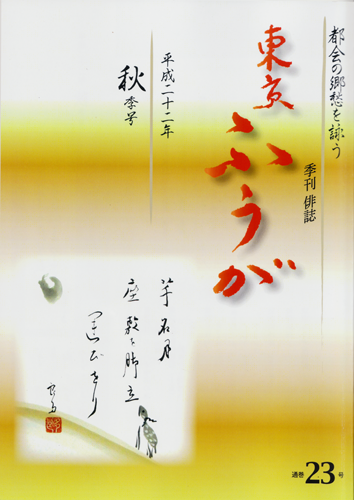 都会の郷愁を詠う
東京ふうが
季刊 俳誌
平成二十二年
秋季号
芋名月
座敷に脚立
運びきり
通巻23号